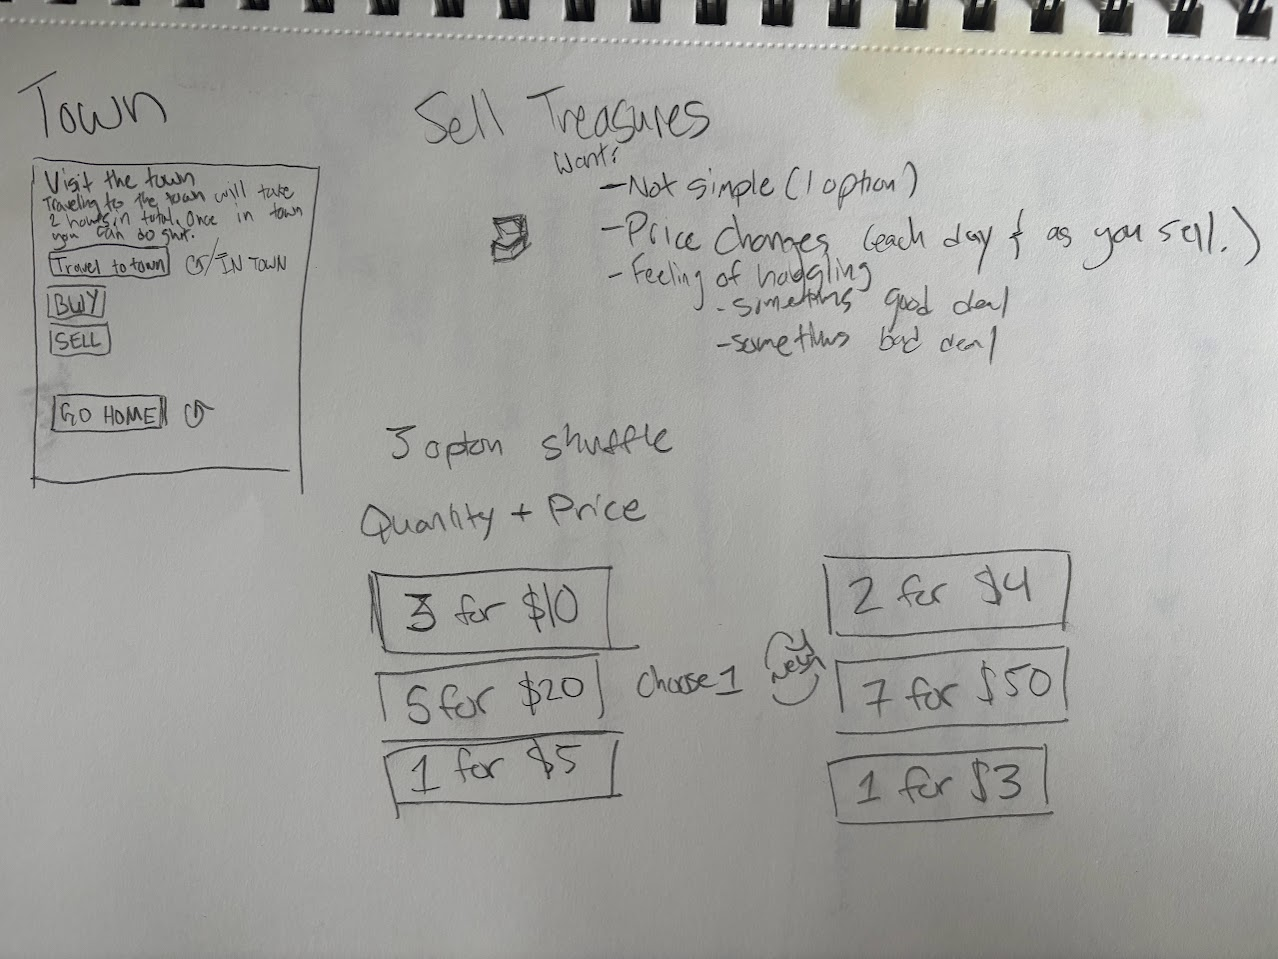 Town
Visit the town
Traveling to the town will take
2 hours in total. Once in town
you can do shit.
Travel to town
/IN TOWN
BUY
SELL
GO HOME
Sell Treasures
Want:
-Not simple (1 option)
-Price Changes (each day & as you sell.)
-Feeling of haggling
-sometims good deal
-somethms bad deal
3 opton shuffle
Quantity + Price
3 for $10
5 for $20
1 for $5
Choose 1
new
2 for $4
7 for $50
1 for $3